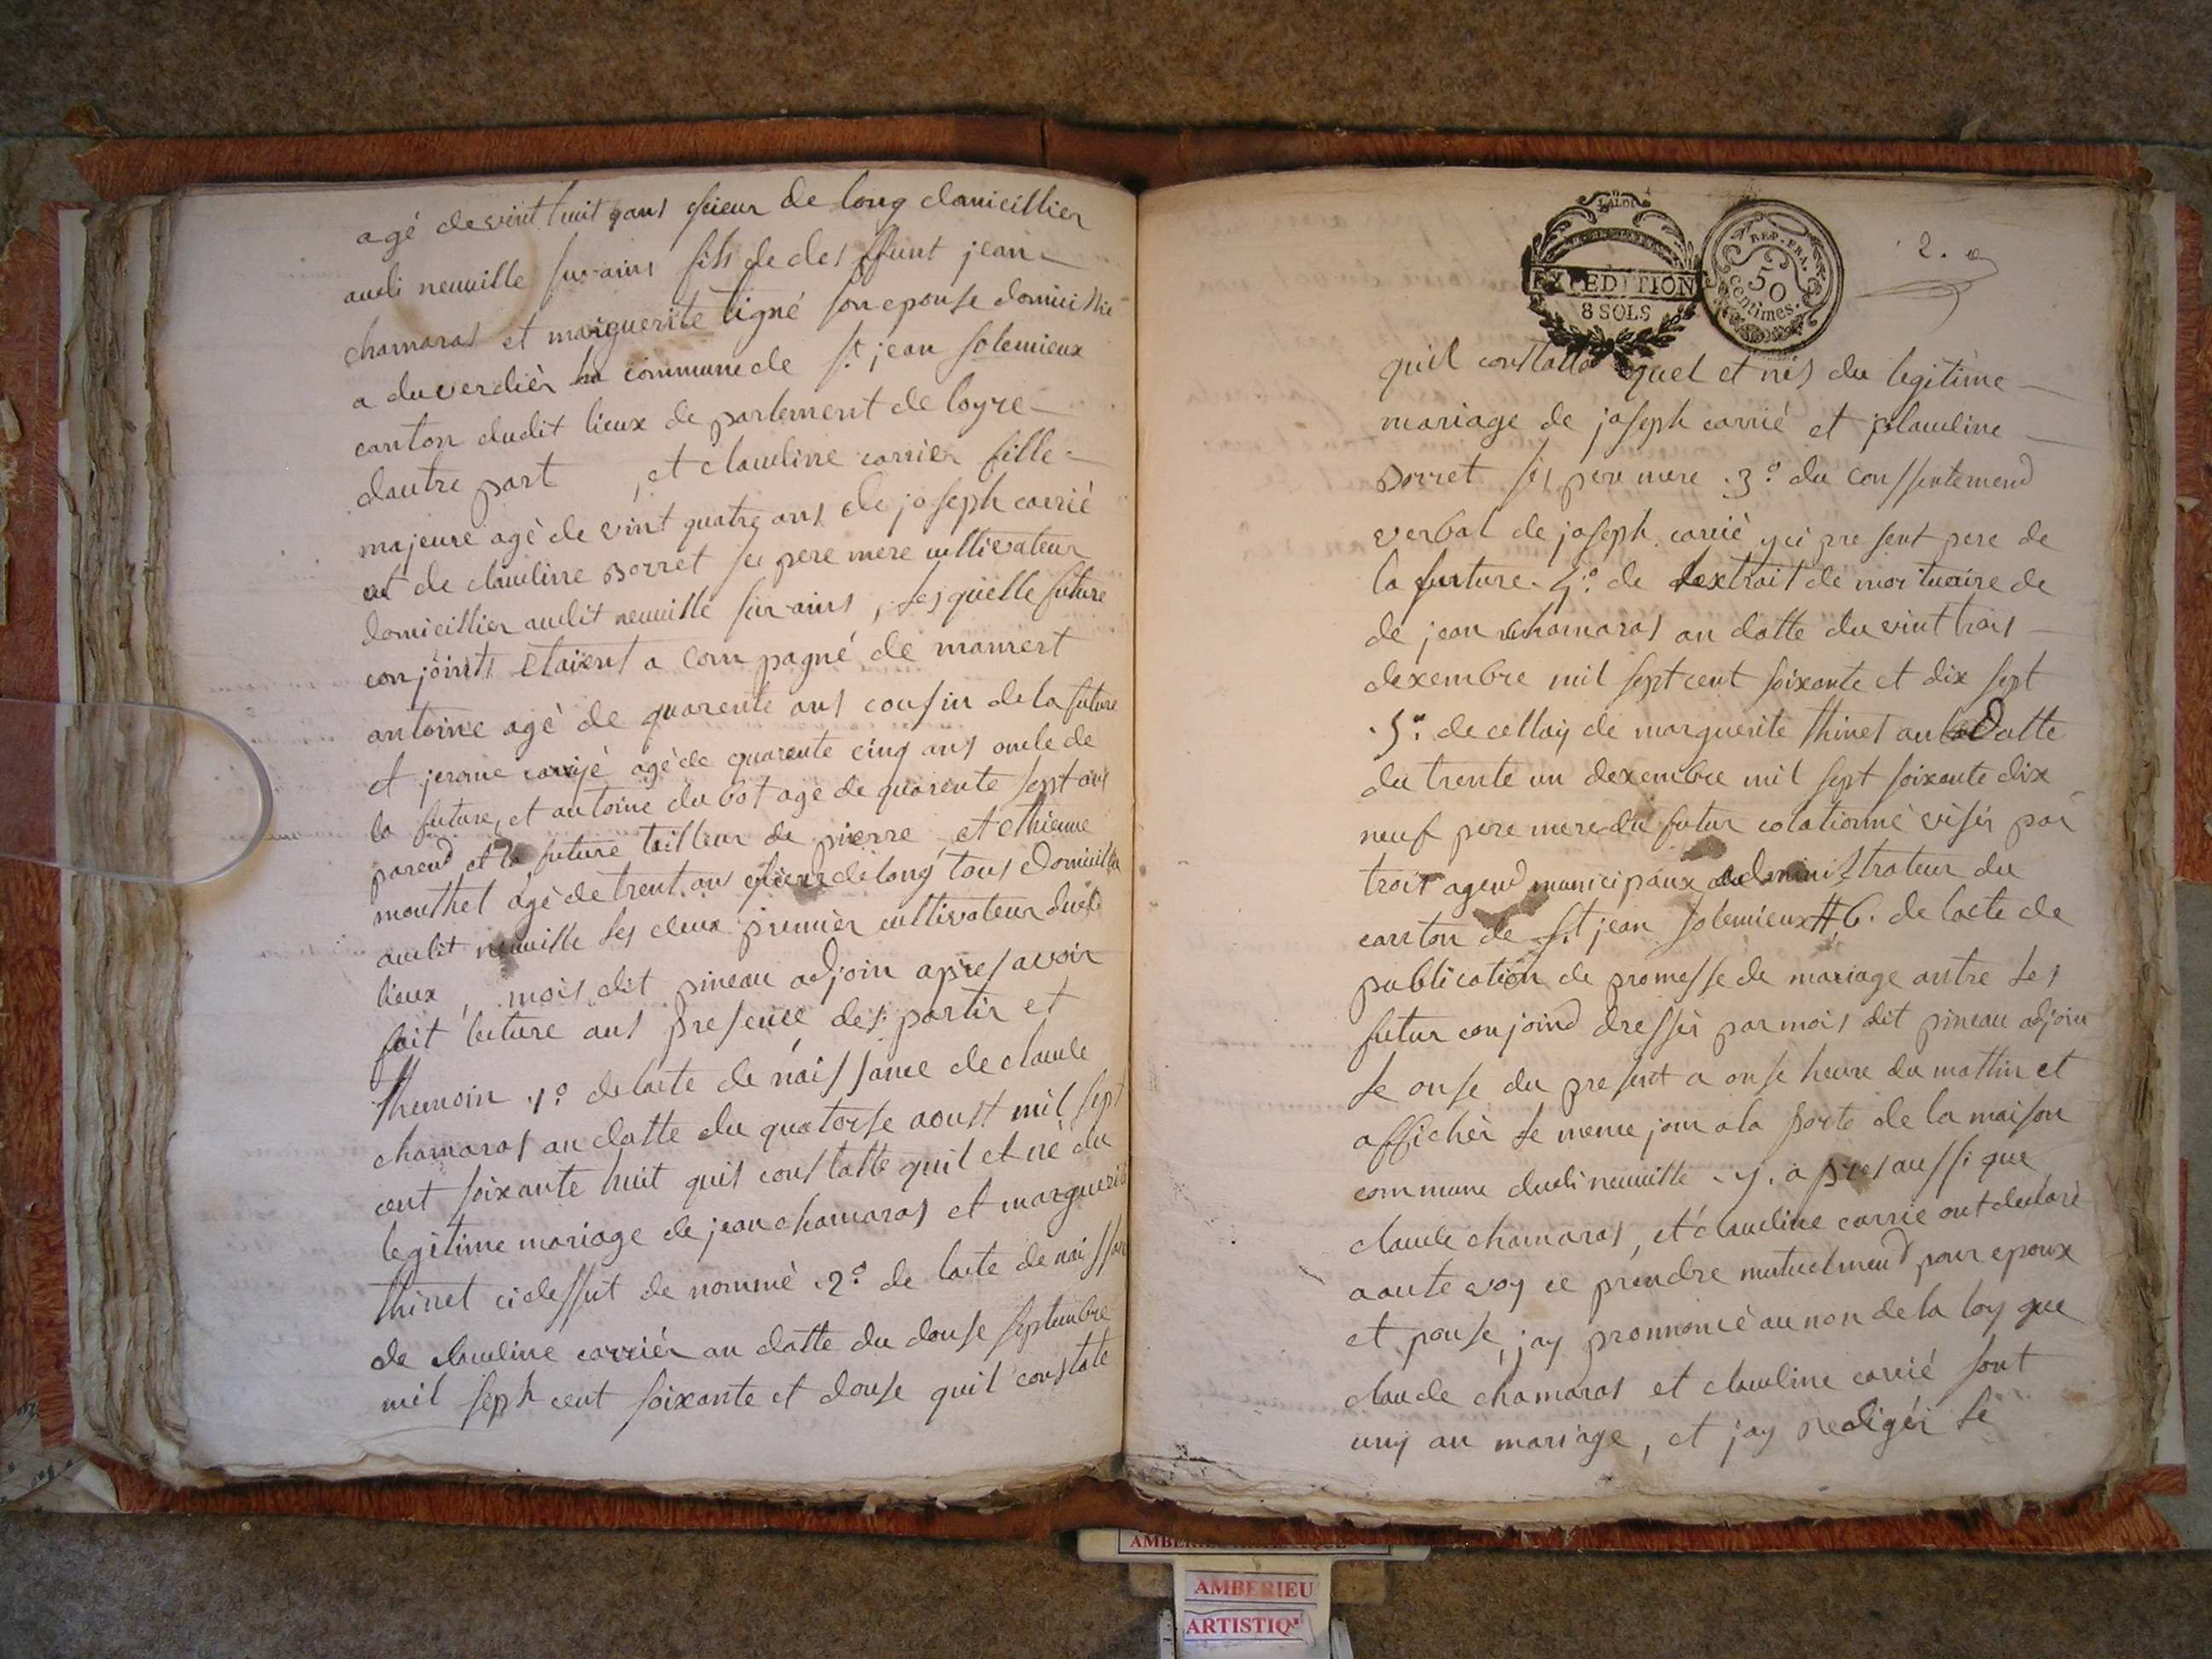 agé de vint huit ans scieur de long domicillier
audi neuville sur ains fils de deffunt jean
chamaras et marguerite tigné son epouse domicillié
a duverdièr la commune de St jean solemieux
canton dudit lieux de partement de loyre
dautre part, et claudine carrièr fille
majeure agè de vint quatre ans de joseph carrié
et de claudine Borret ses pere mere cultivateur
domicillier audit neuville sur ains, Lesquelle future
conjoints étaient a com pagné de
antoine agè de quarente ans cousin de la future
et jerome carrié agè de quarente cinq ans oncle de
la future, et antoine du bot age de quarente sept ans
parend et la future tailleur de pierre, et ethienne
mouthet agè de trent ans scieur de long tous domicillier
audit neuville Les deux premièr cultivateur dudit
lieux, mois dit pineau adjoin apres avoir
fait lecture ans presence des partir et
themoin .1o. de lacte de naissance de claude
chamaras an datte du quatorse aoust mil sept
cent soixante huit quil constatte quil et né du
legitime mariage de jean chamaras et marguerite
thinet cidessut de nommè .2o. de lacte de naissan
de claudine carrièr an datte du douse septembre
mil seph cent soixante et douse quil constate
LA LOI
EXPEDITION
8 SOLS
REP. FRA.
50
centimes.
2.
quil constatte quel et nés du legitime
mariage de joseph carrié et claudine
Borret ses pere mere .3o. du conssentemend
verbal de joseph carrié yci present pere de
la furture. 4o. de lextrait de mortuaire de
de jean chamaras an datte du vint trois
dexembre mil sept cent soixante et dix sept
.5o. de cellay de marguerite thinet an Datte
du trente un dexembre mil sept soixante dix
neuf pere mere du futur colationné visés par
troit agend municipaux administrateur du
canton de St jean solemieux # 6. de lacte de
publication de promesse de mariage antre Les
futur conjoind dressér par mois dit pineau adjoin
Le onse du present a onse heure du mattin et
affichèr Le meme jour a la porte de la maison
commune dudi neuville .7. apres aussi que
claude chamaras, et claudine carrie ont declaré
a aute voy ce prendre mutuelmend pour epoux
et pouse, jay prononcè au non de la loy que
claude chamaras et claudine carrié sont
uny an mariage, et jay redigér Le
AMBERIEU
ARTISTIQ